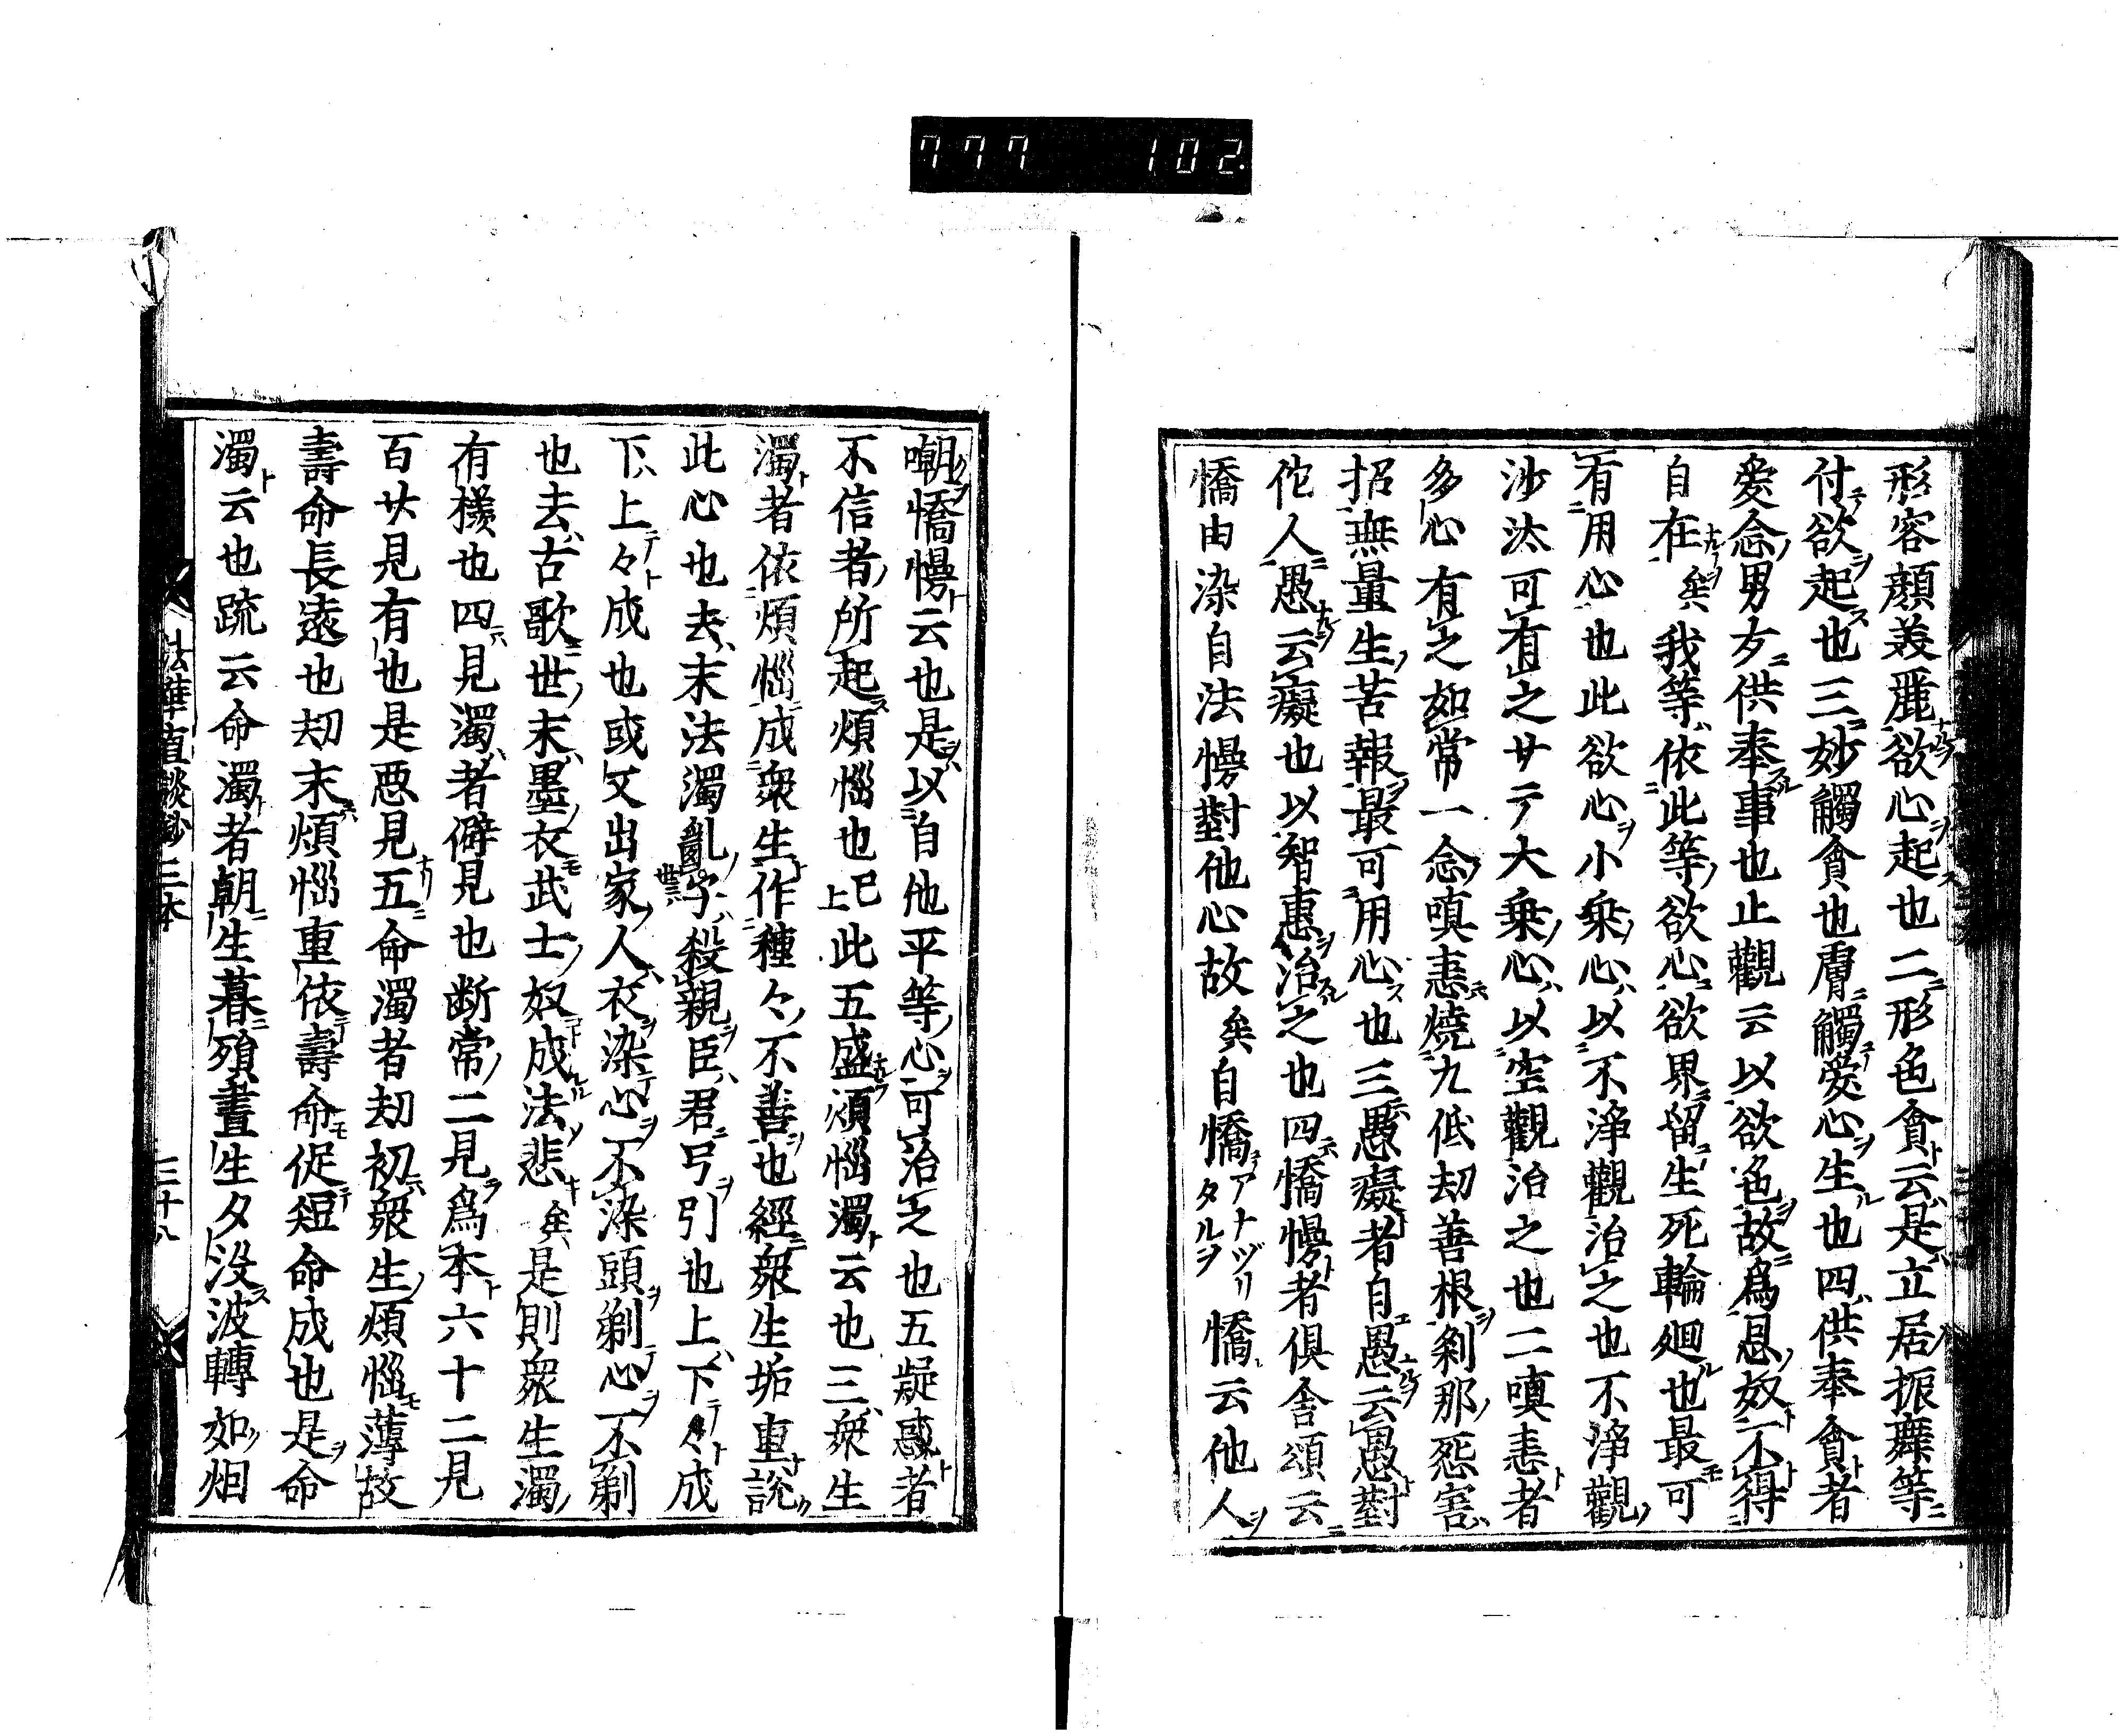 777 102
形容顔美麗欲心起也二形色貪云是立居振舞等
付欲起也三妙觸貪也膚觸愛心生也四供奉貪者
愛念男女供奉事也止觀云以欲色故爲恩奴不得
自在矣我等依此等欲心欲界留生死輪廻也最可
有用心也此欲心小乗心以不淨觀治之也不淨觀
沙汰可有之サテ大乗心以空觀治之也二嗔恚者
多心有之如常一念嗔恚燒九低劫善根刹那怨害
招無量生苦報最可用心也三愚癡者自愚云愚對
佗人愚云癡也以智惠治之也四憍慢者倶舎頌云
憍由染自法慢對他心故矣自憍アナヅリタルヲ憍云他人
嘲憍慢云也是以自他平等心可治之也五疑惑者
不信者所起煩惱也已上此五盛煩惱濁云也三衆生
濁者依煩惱成衆生作種々不善也經衆生垢重說
此心也去末法濁亂世ニハ子殺親臣君弓引也上下々成
下上々成也或又出家人衣染心不染頭剃心不剃
也去古歌世末墨衣武士奴成法悲矣是則衆生濁
有樣也四見濁者僻見也断常二見爲本六十二見
百廿見有也是悪見五命濁者劫初衆生煩惱薄故
壽命長遠也劫末煩惱重依壽命促短命成也是命
濁云也疏云命濁者朝生暮殞晝生夕没波轉如烟
法華直談鈔二本 三十八